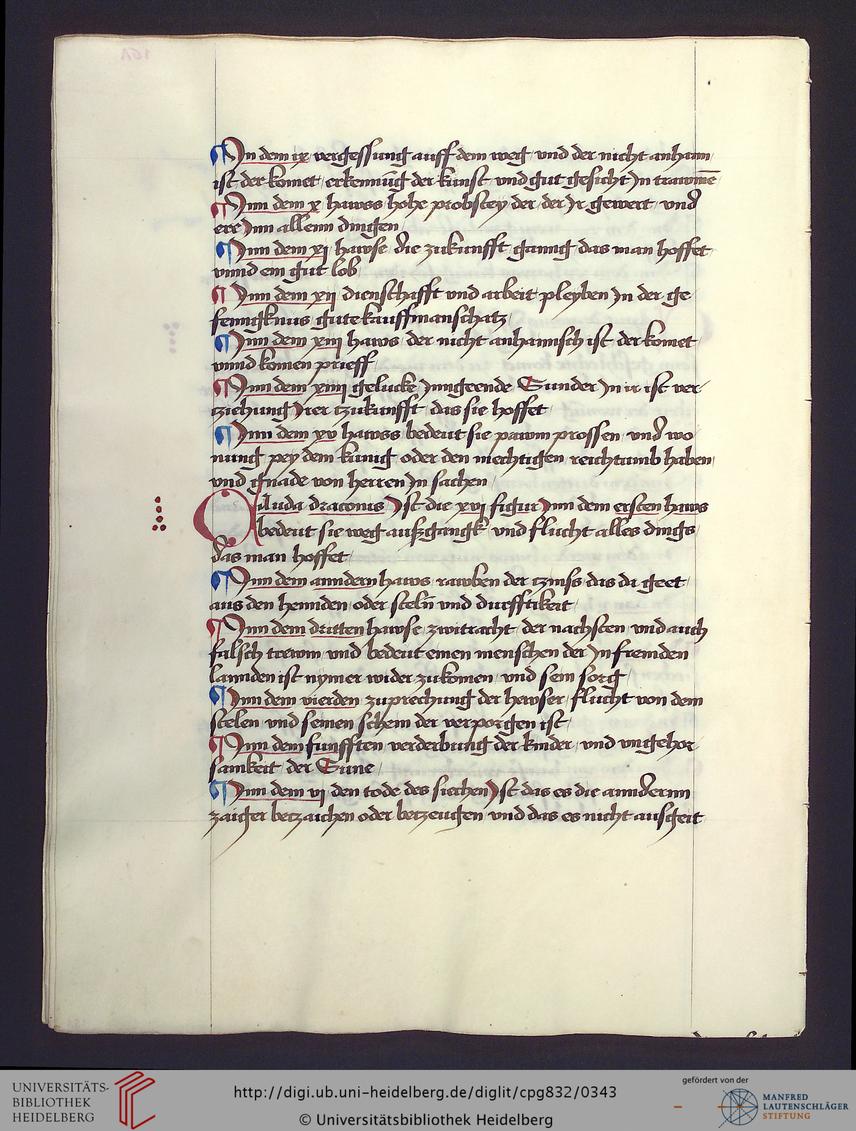 ¶ In dem ix vergessung auff dem weg vnd der nicht anham
ist der komet erkennũg der kunst vnd gut gesicht In trawmē
¶ Inn dem x hawss hohe probstey der der Ir gewert vnd
ere Inn allenn dingen
¶ Inn dem xj hawse die zukunfft ganng das man hoffet
vnnd ein gut lob
¶ Inn dem xij dienschafft vnd arbeit pleyben In der ge
fenngknus gute kauffmanschatz
¶ Inn dem xiij haws der nicht anhaimsch ist der komet
vnnd komen prieff
¶ Inn dem xiiij gelucke Inngeende Sunder In ir ist ver
tziehung Irer tzukunfft das sie hoffet
¶ Inn dem xv hawss bedeut sie pawm prossen vnd wo
nung pey dem kunig oder den mechtigen reichtumb haben
vnd gnade von herren In sachen
Cauda draconis Ist die xvj figur Inn dem ersten haws
bedeut sie weg außgangk vnd flucht alles dings
das man hoffet
¶ Inn dem anndern haws rawben der tzinss das da geet
aus den hennden oder steln vnd durfftikeit
¶ Inn dem dritten hawse zwitracht der nachsten vnd auch
falsch trewm vnd bedeut einen menschen der In fremden
lannden ist nymer wider zukomen vnd sein sorg
¶ Inn dem vierden zuprechung der hewser flucht von dem
stelen vnd seinen schein der verporgen ist
¶ Inn dem funfften verderbung der kinder vnd vngehor
samkeit der Sune
¶ Inn dem vj den tode des siechen Ist das es die anndernn
zaiger betzaichen oder betzeugen vnd das es nicht ausgeit
UNIVERSITÄTS-
BIBLIOTHEK
HEIDELBERG
http://digi.ub.uni-heidelberg.de/diglit/cpg832/0343
© Universitätsbibliothek Heidelberg
gefördert von der
MANFRED
LAUTENSCHLÄGER
STIFTUNG